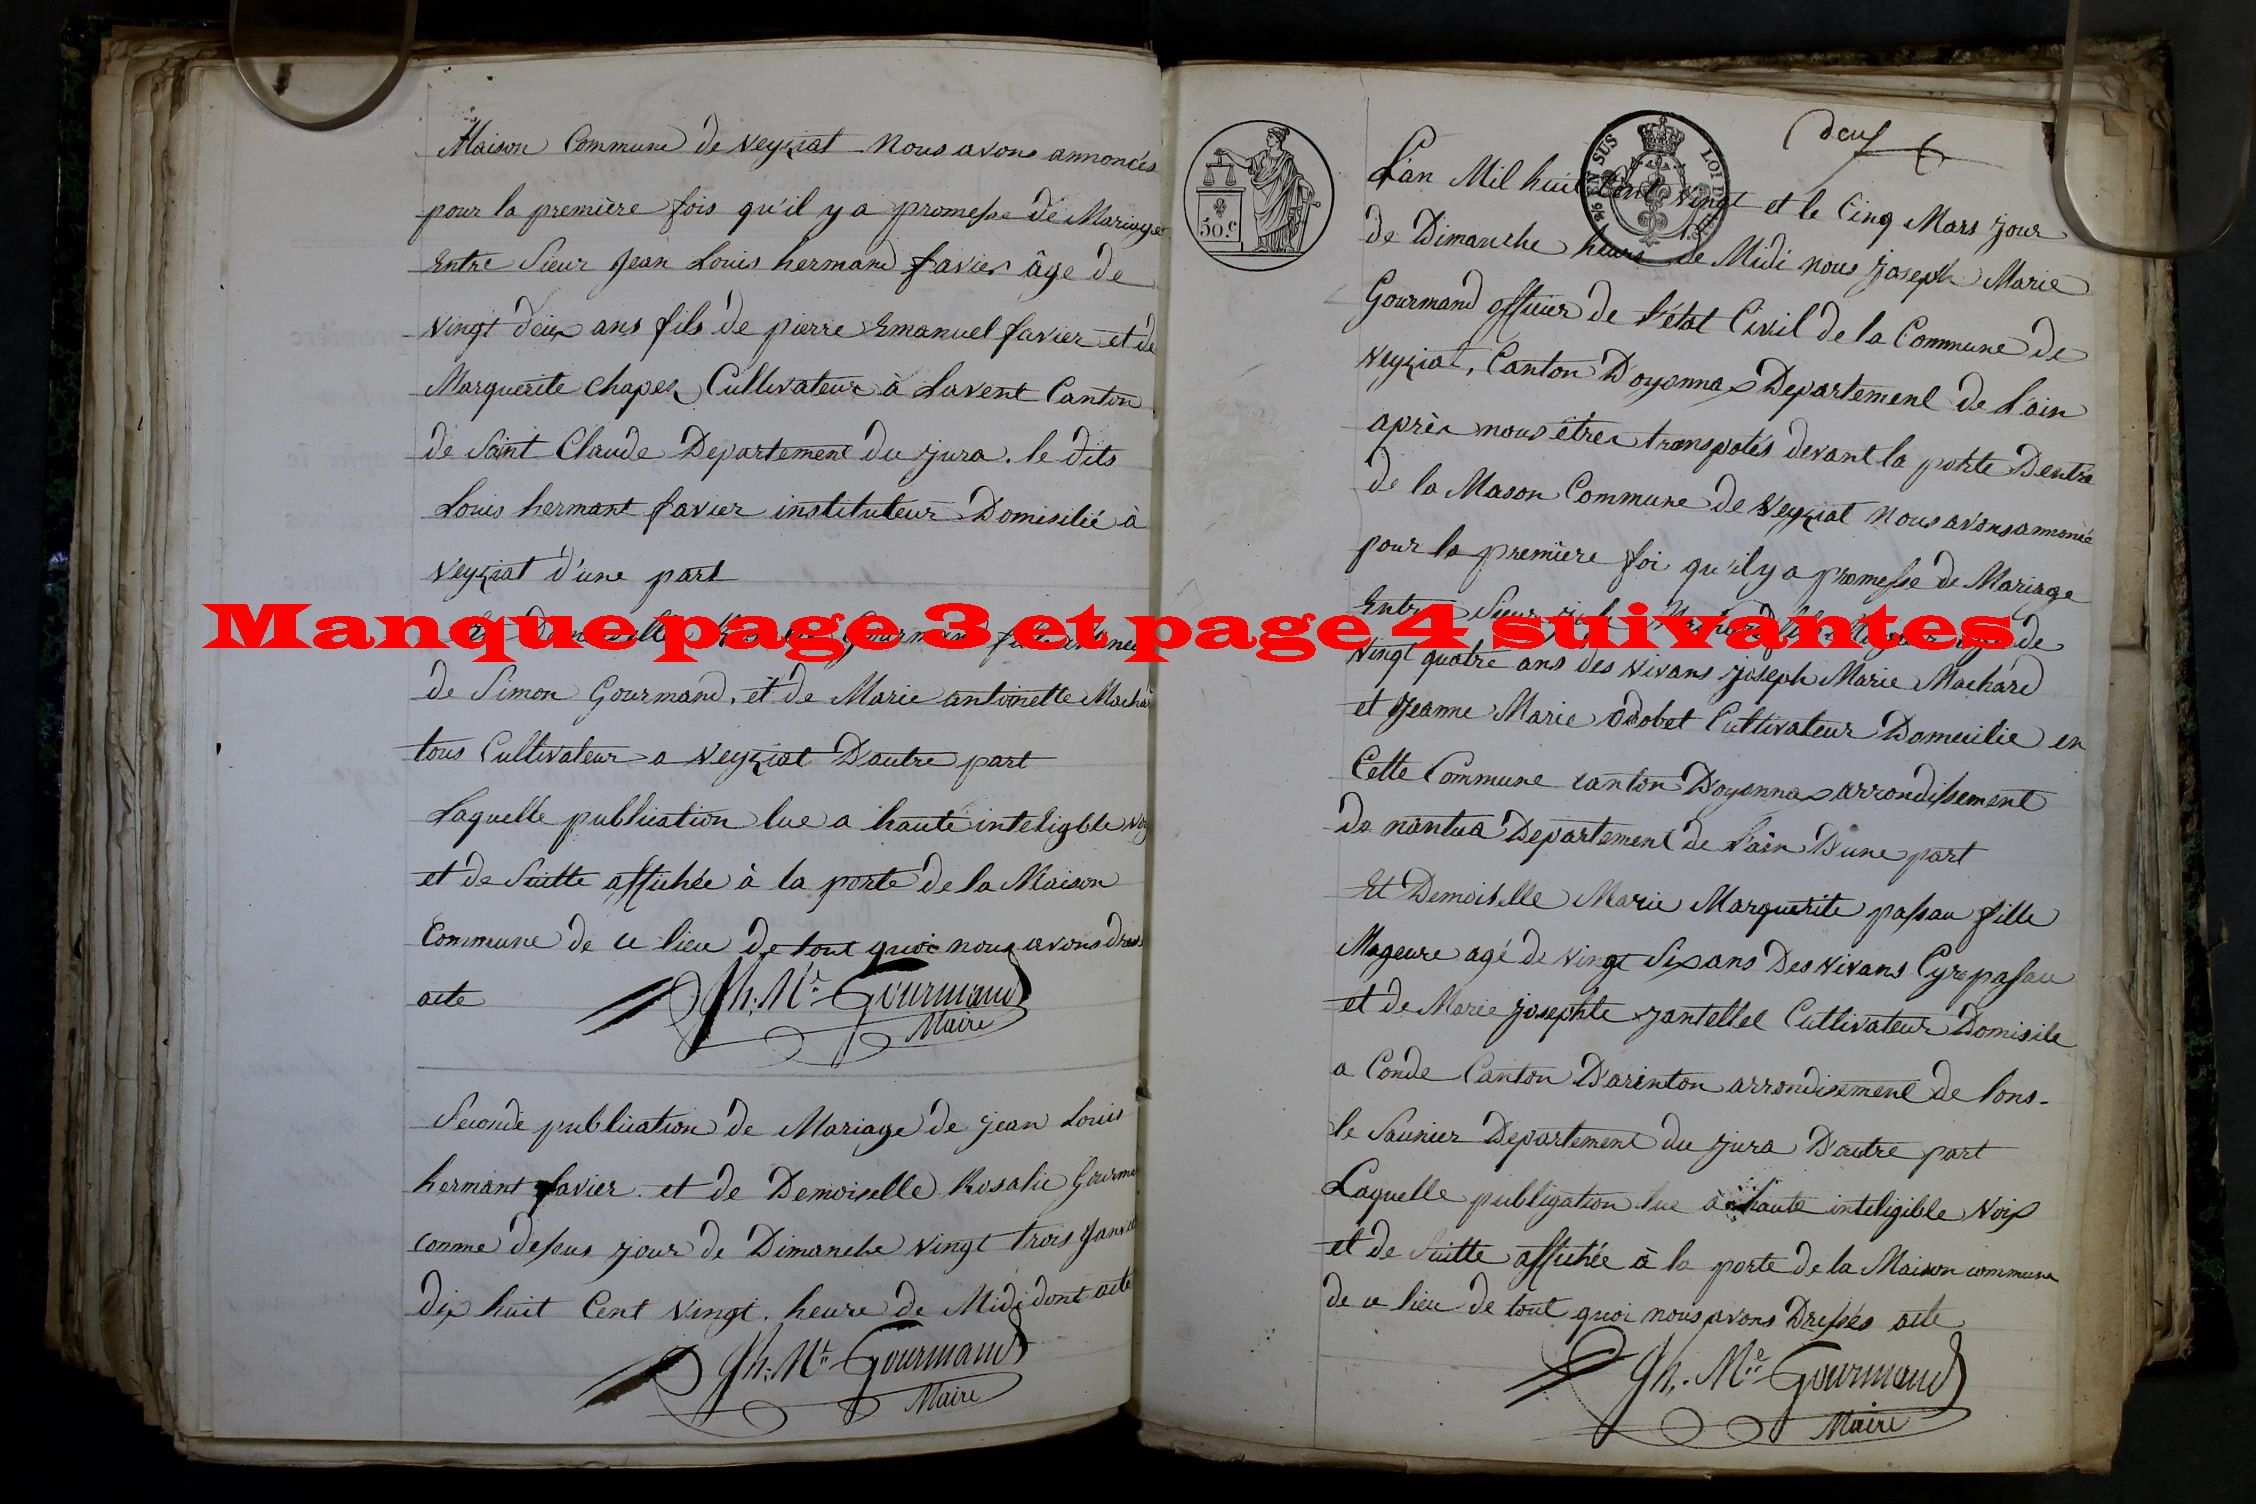 Maison Commune de veyziat Nous avons annoncés
pour la première fois qu'il y a promesse de Mariage
Entre Sieur jean Louis hermand favier âge de
vingt deux ans fils de pierre Emanuel favier et de
Marguerite chapez Cultivateur à Lavent Canton
de Saint Claude Departement du jura. le dits
Louis hermant favier instituteur Domisilié à
veyziat d'une part
Manque page 3 et page 4 suivantes
de Simon Gourmand, et de Marie antoinette Machar
tous Cultivateur a veyziat D'autre part
Laquelle publication lue a haute inteligble voy
et de Suitte affichée à la porte de la Maison
Commune de ce lieu de tout quoi nous avons dress
acte
Jh. Mie Gourmand
Maire
Seconde publication de Mariage de jean Louis
hermant favier et de Demoiselle Rosalie Gourma
comme dessus jour de Dimanche vingt trois janvie
dix huit Cent vingt. heure de Midi dont acte
Jh. Mie Gourmand
Maire
deux
50.c
L'an Mil huit Cent vingt et le Cinq Mars jour
de Dimanche heure de Midi nous joseph Marie
Gourmand officier de l'état Civil de la Commune de
veyziat, Canton D'oyonnax Departement de L'ain
après nous êtres transpotés devant la porte Dentré
de la Mason Commune de veyziat Nous avons annoncé
pour la première foi qu'il y a promesse de Mariage
Entre Sieur de
vingt quatre ans des vivans joseph Marie Machard
et jeanne Marie odobet Cultivateur Domicilie en
Cette Commune canton D'oyonnax arrondissement
de nantua Departement de L'ain D'une part
Et Demoiselle Marie Marguerite passau fille
Mageure agé de vingt Six ans Des vivans Cyre passau
et de Marie josephte jantellel Cultivateur Domisile
a Conde Canton D'arinton arrondisement de lons-
le Saunier Departement du jura D'autre part
Laquelle publigation lue à haute inteligible voix
et de Suitte affichée à la porte de la Maison commune
de ce lieu de tout quoi nous avons Dressés acte
Jh. Mie Gourmand
Maire